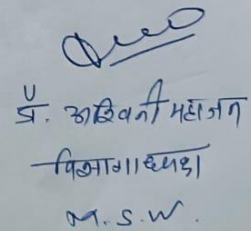 प्रा. अश्विनी महाजन
विभागाध्यक्ष
M.S.W.